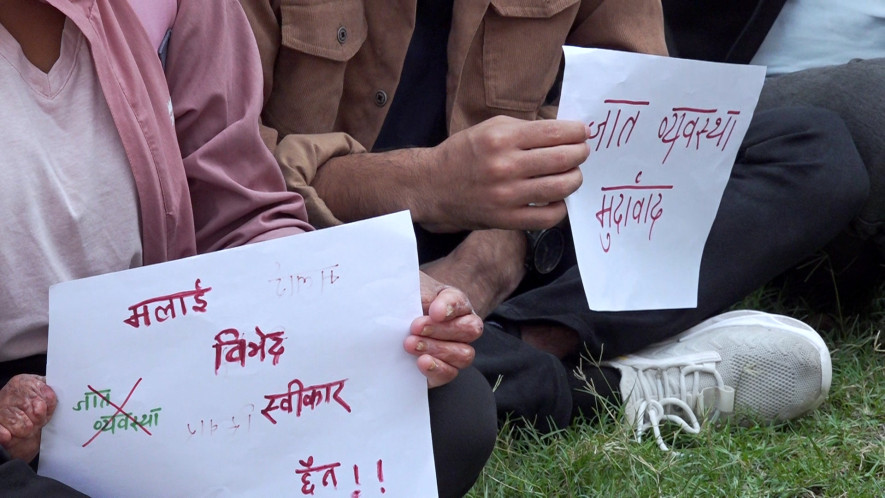 मलाई
विभेद
स्वीकार
छैन !!
जात
व्यवस्था
जात व्यवस्था
मुर्दावाद